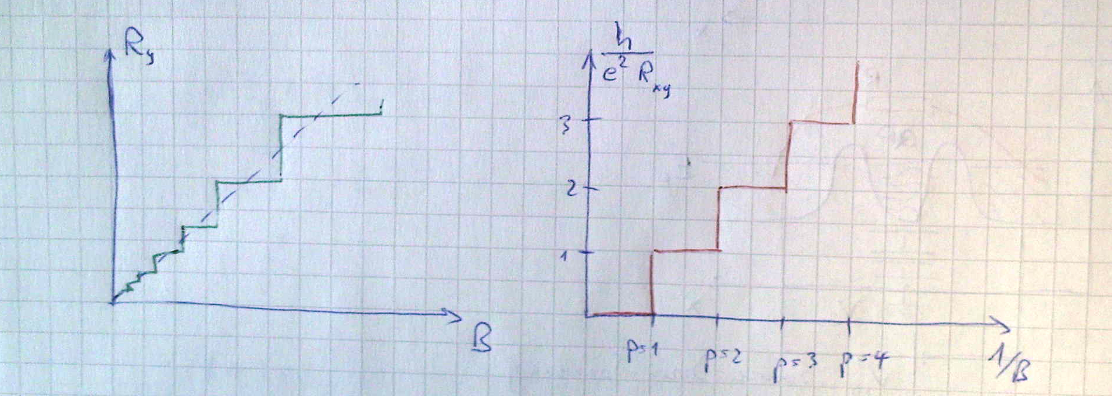 R_y
B
h
e² R_xy
3
2
1
p=1 p=2 p=3 p=4
1/B